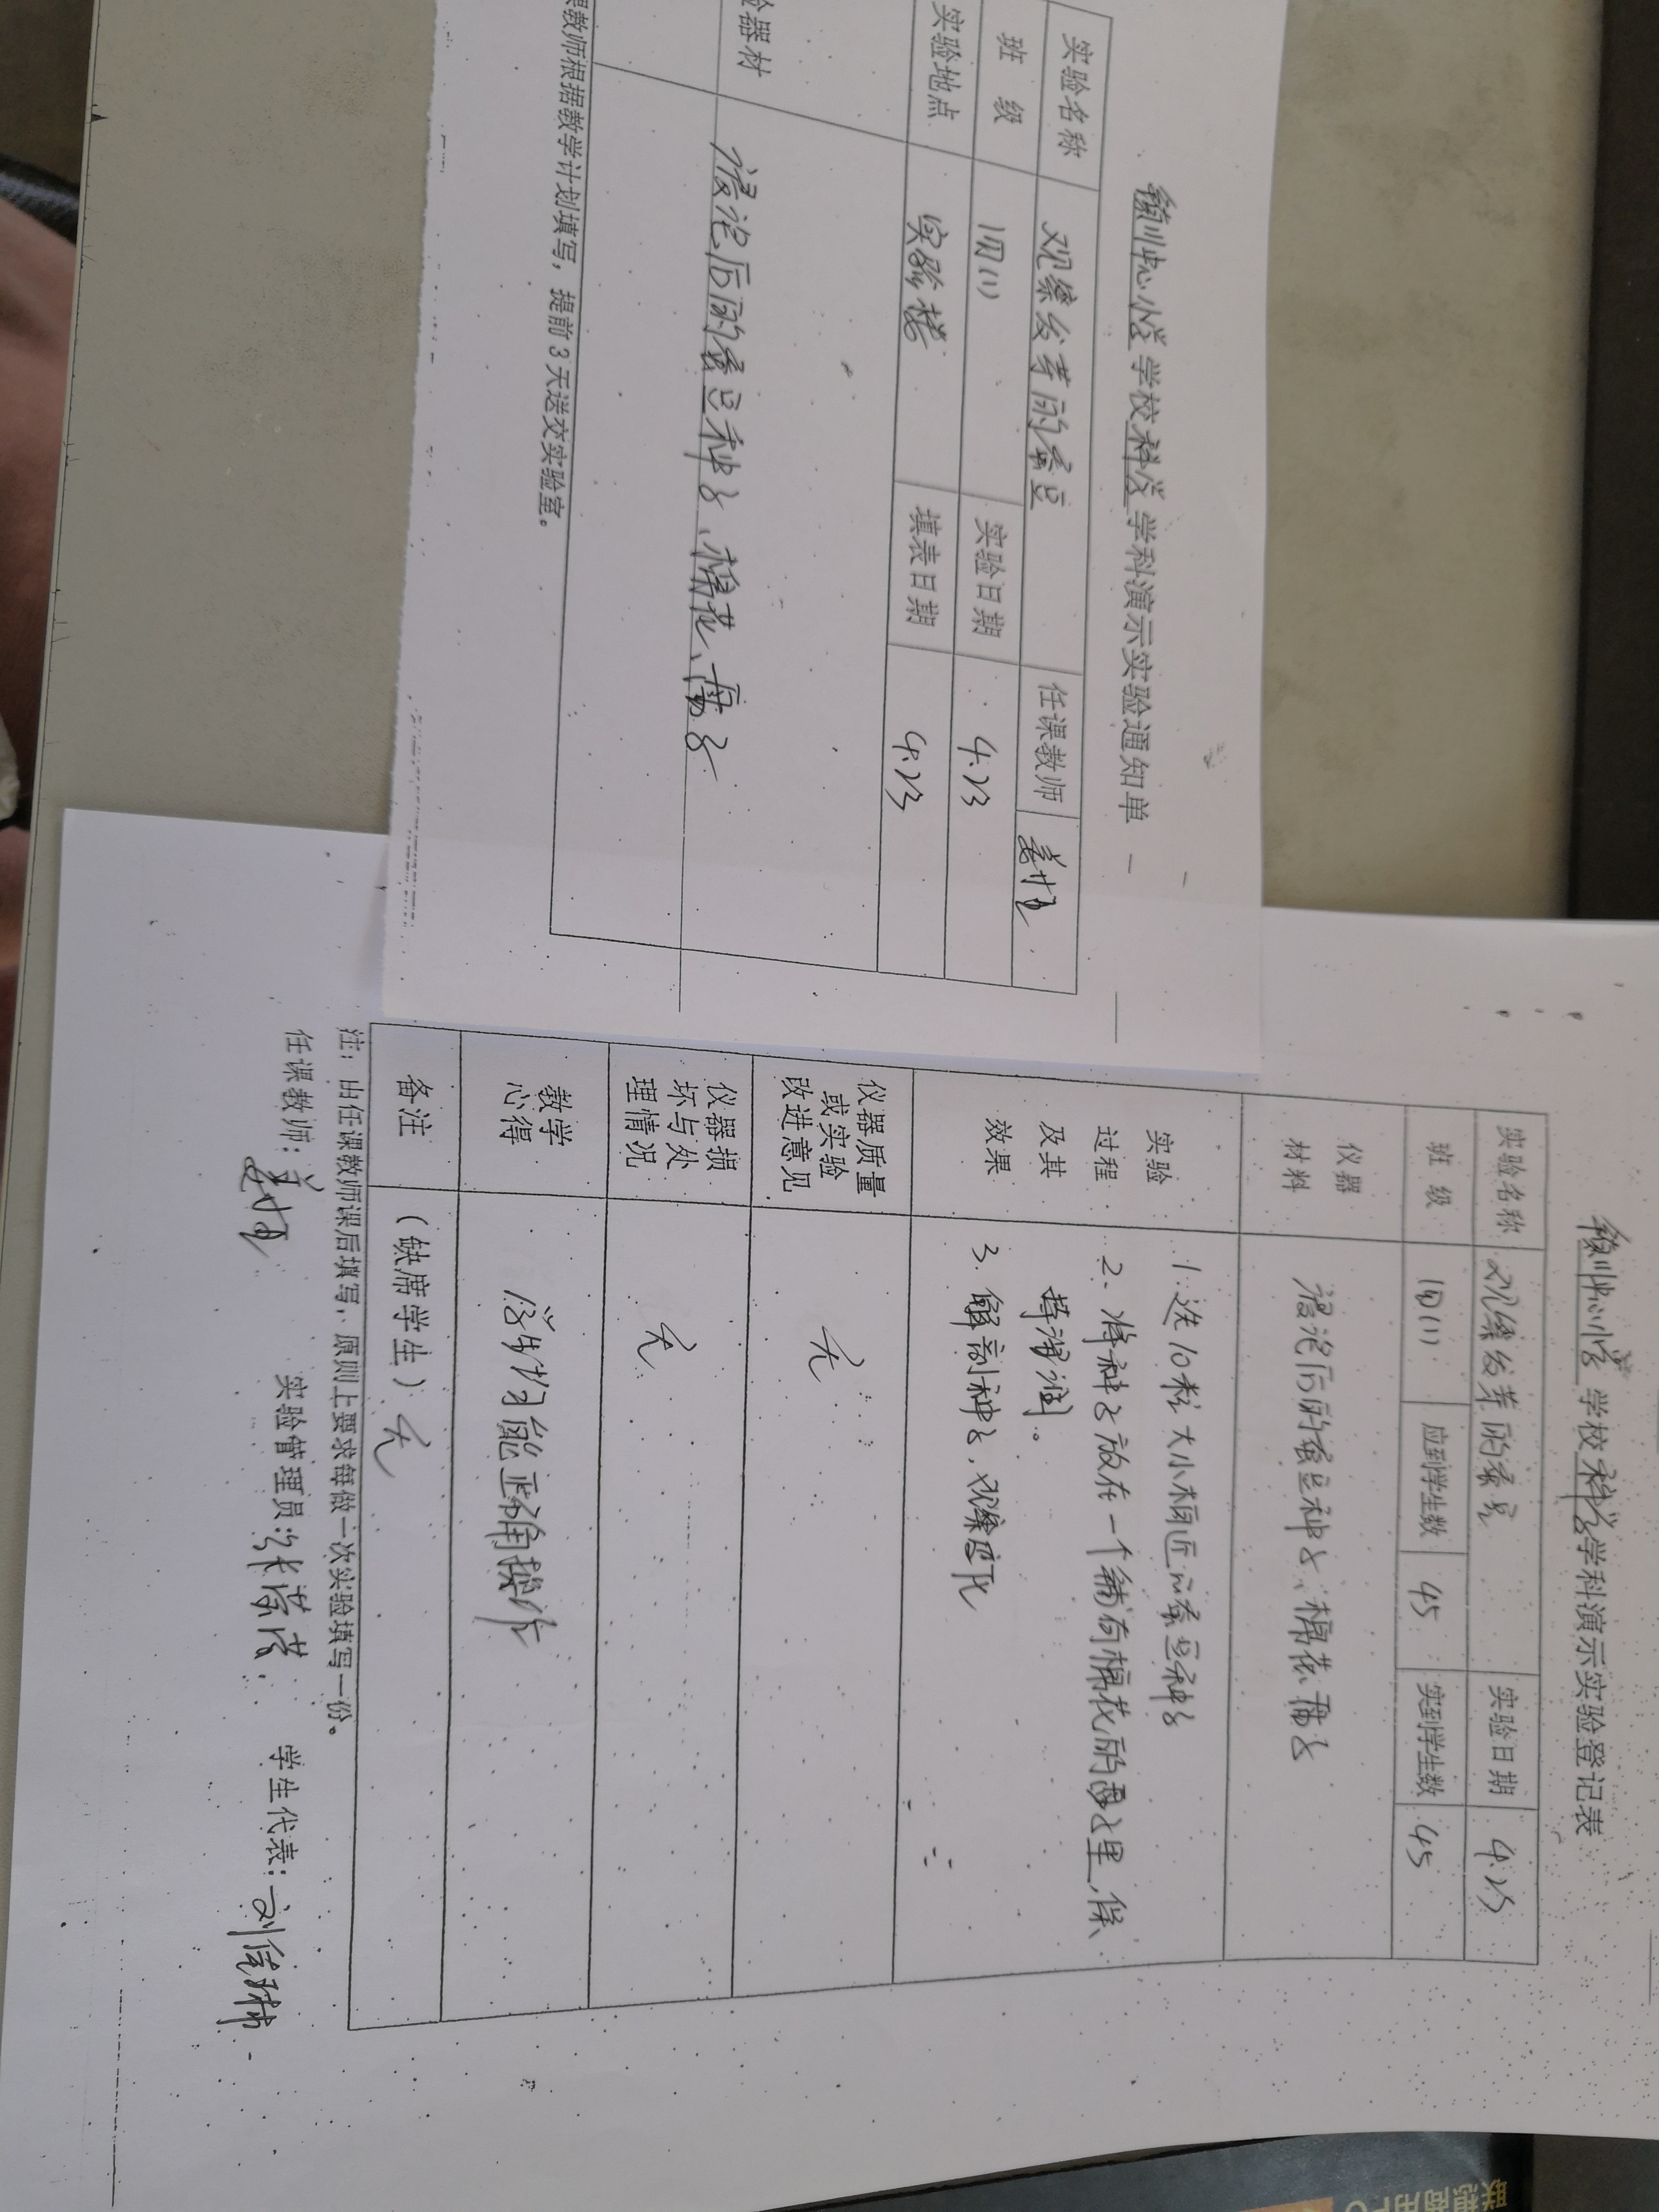 中心小学 学校 科学 学科演示实验通知单
实验名称 观察发芽的蚕豆 任课教师 姜
班 级 四(1) 实验日期 4.23
实验地点 实验楼 填表日期 4.23
验器材 浸泡后的蚕豆种子、棉花、盘子
课教师根据教学计划填写，提前3天送交实验室。
中心小学 学校 科学 学科演示实验登记表
实验名称 观察发芽的蚕豆 实验日期 4.23
班 级 四(1) 应到学生数 45 实到学生数 45
仪器
材料
浸泡后的蚕豆种子、棉花、盘子
实验
过程
及其
效果
1.选10粒大小相近的蚕豆种子
2.将种子放在一个铺有棉花的盘子里，保
持湿润。
3.解剖种子，观察变化
仪器质量
或实验
改进意见
无
仪器损
坏与处
理情况
无
教学
心得
学生均能正确操作
备注 (缺席学生) 无
注：由任课教师课后填写，原则上要求每做一次实验填写一份。
任课教师：姜 实验管理员：张 学生代表：刘
联想商用PC